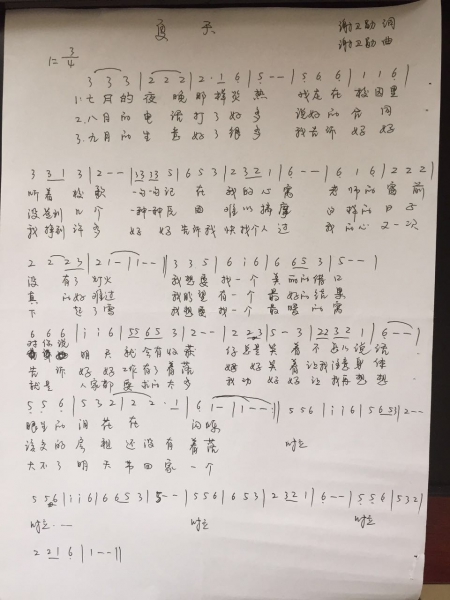 夏天
谢卫勋 词
谢卫勋 曲
1= 3/4
3 3 3 | 2 2 2 | 2 · 1 6 | 5 - - | 5 6 6 | 1 1 6 |
1.七月的夜晚那样炎热 我走在校园里
2.八月的电话打了好多 说好的合同
3.九月的生意好了很多 我告诉好好
3 3 1 3 | 2 - - | 13 13 5 | 6 5 3 | 2 3 2 1 | 6 - - | 6 1 6 | 2 2 2
听着校歌 一句句记在我的心窝 老师的窗前
没签到几个 一种种反由难以揣摩 这样的日子
我挣到许多 好好告诉我快找个人过 我的心又一次
2 2 2 3 | 2 1 - | 1 - - | 3 3 5 | 6 i 6 | 6 6 5 3 | 5 - - |
没有了灯火 我想要找一个美丽的借口
真的好难过 我盼望有一个最好的结果
下起了雪 我想要找一个最暖的窝
6 6 6 | i i 6 | 5 5 6 5 3 | 2 - - | 2 2 3 | 5 - 3 | 2 2 3 2 1 | 6 - - |
对你说 明天就会有好
告诉好好工作有了着落 好好笑着让我注意身体
就是人家都要求的太多 我劝好好让我再想想
5 5 6 | 5 3 2 | 2 2 · 1 | 6 1 - | 1 - - | 5 5 6 | i i 6 | 5 6 5 3 | 2 - -
眼里的泪在在闪烁
该交的房租还没有着落
大不了明天带回家一个
5 5 6 | i i 6 | 6 6 5 3 | 5 - - | 5 5 6 | 6 5 3 | 2 3 2 1 | 6 - - | 5 5 6 | 5 3 2 |
2 2 1 6 | 1 - - ||